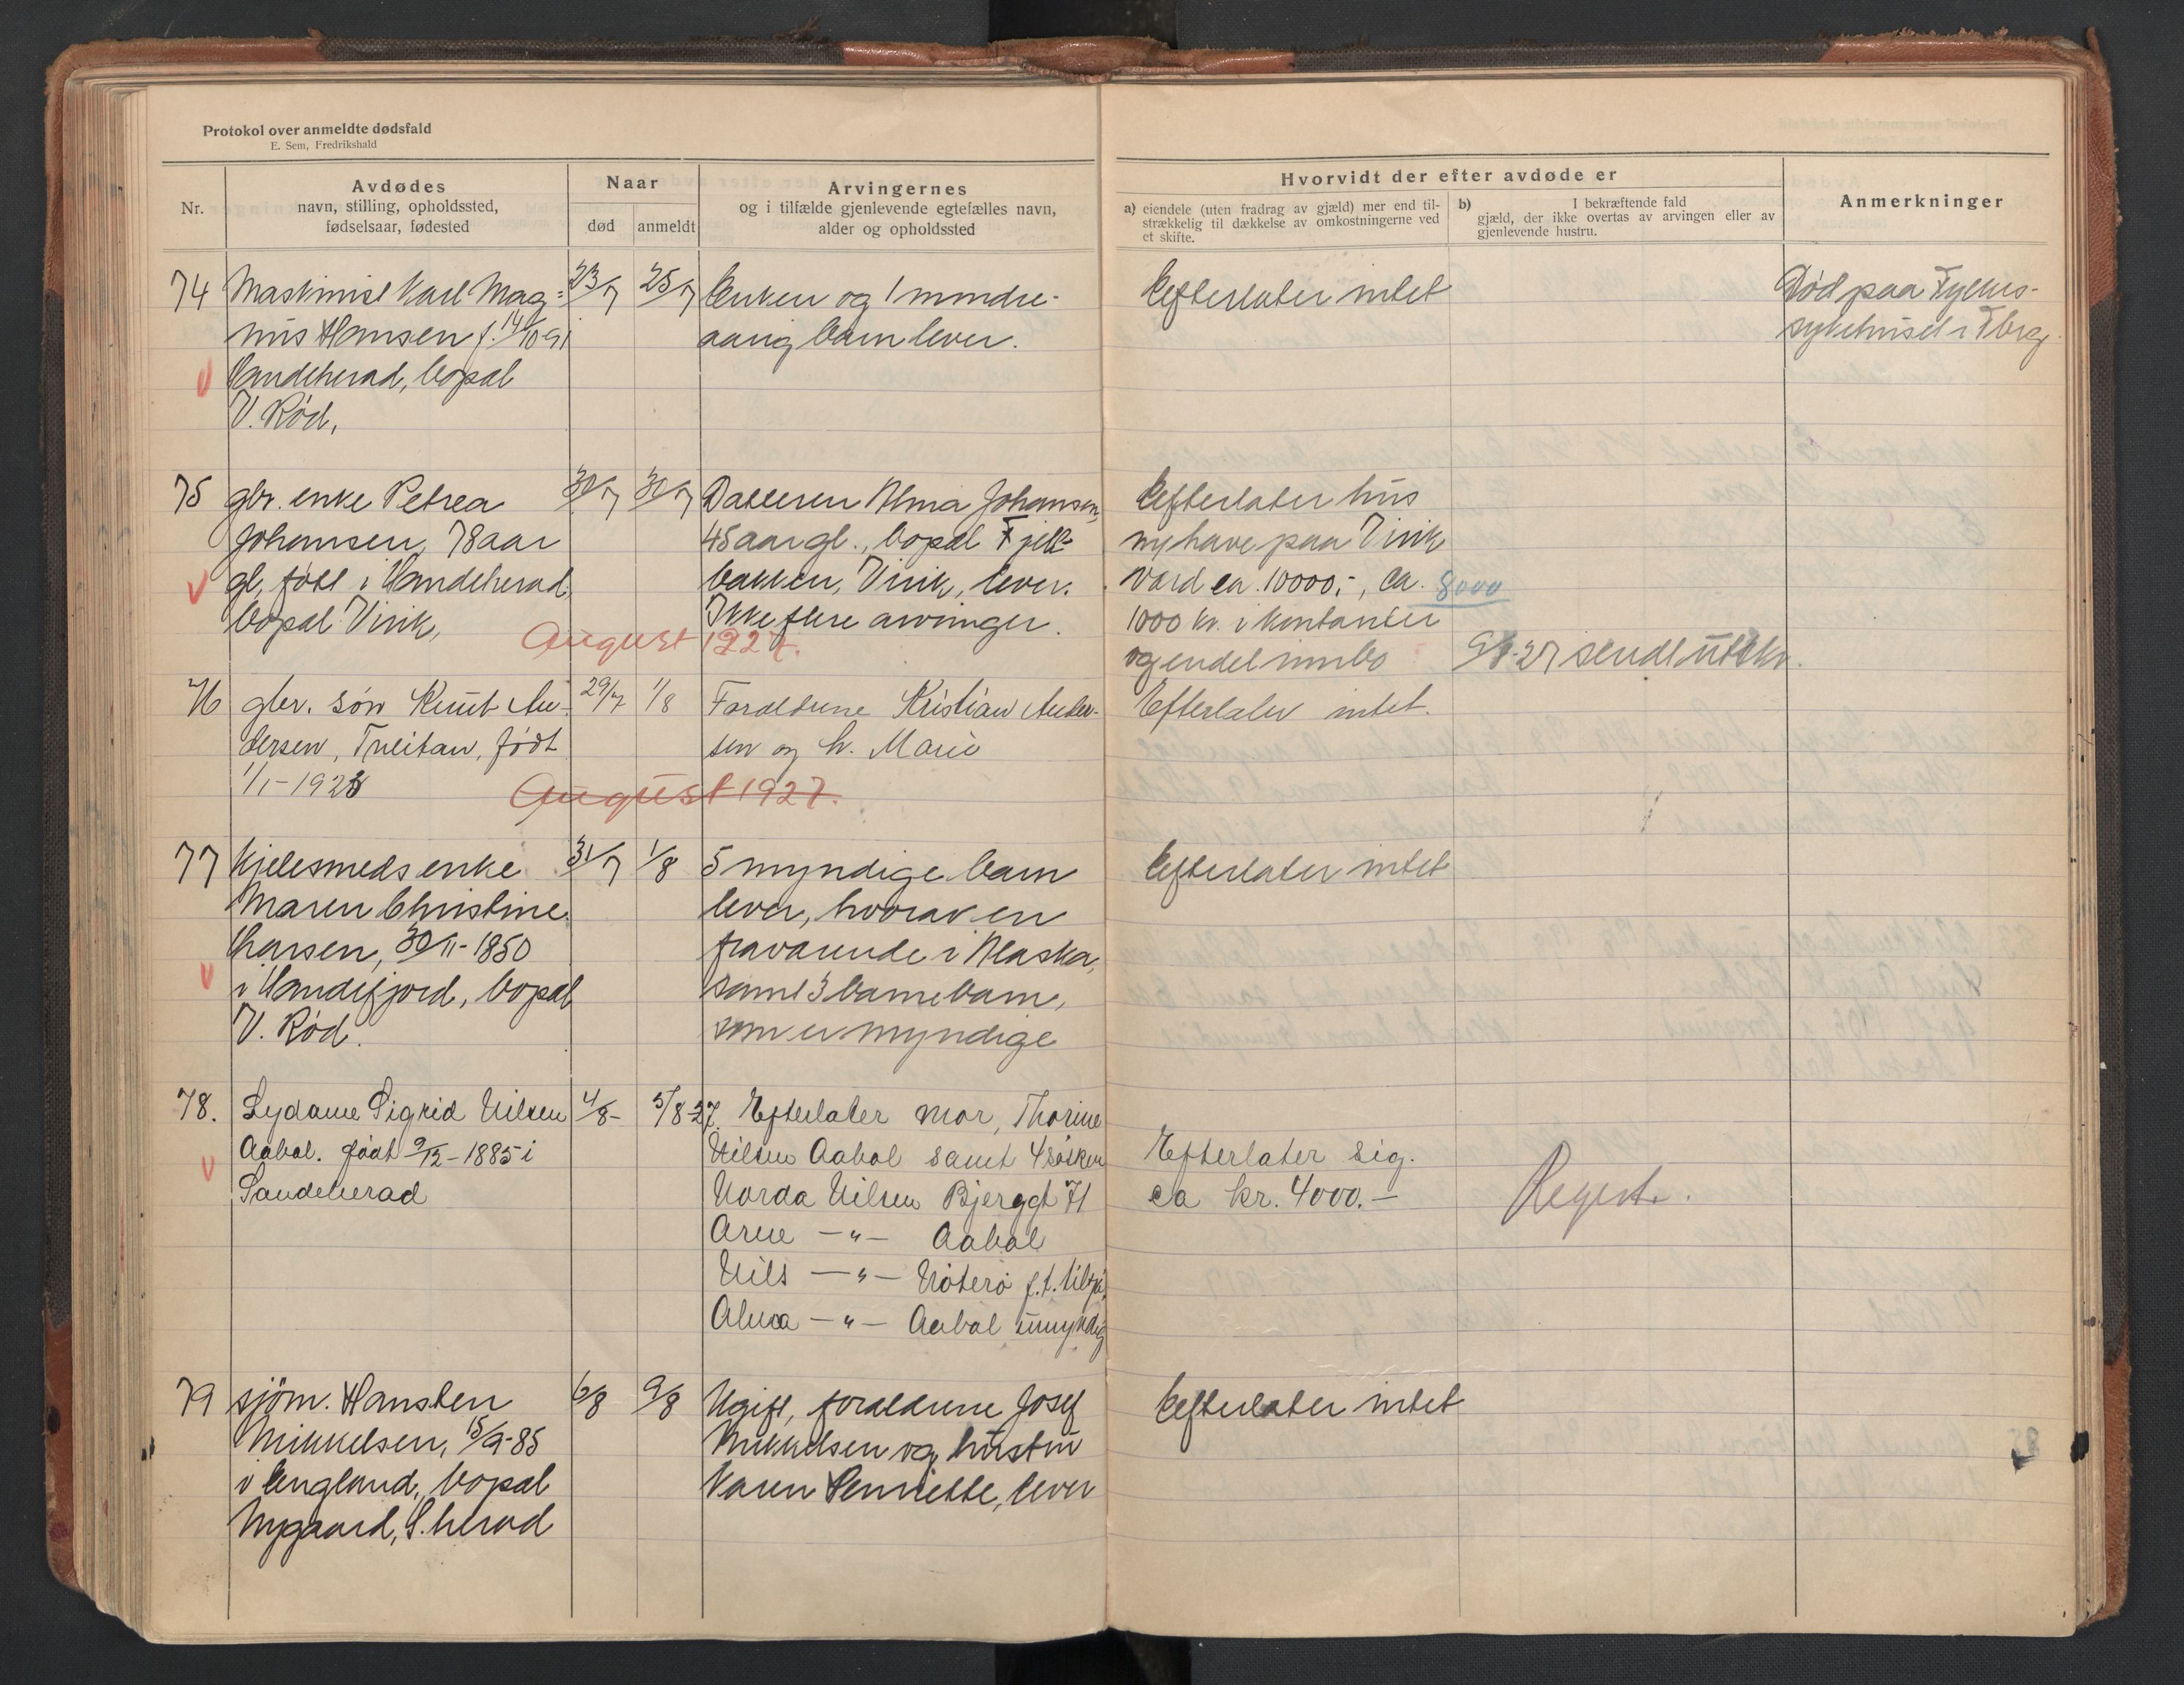 Protokol over anmeldte dødsfald
E. Sem, Fredrikshald
Nr.
Avdødes
navn, stilling, opholdssted,
fødselsaar, fødested
Naar
død
anmeldt
Arvingernes
og i tilfælde gjenlevende egtefælles navn,
alder og opholdssted
Hvorvidt der efter avdøde er
a) eiendele (uten fradrag av gjæld) mer end til-
strækkelig til dækkelse av omkostningerne ved
et skifte.
b) I bekræftende fald
gjæld, der ikke overtas av arvingen eller av
gjenlevende hustru.
Anmerkninger
74 Maskinist Karl Mag- 23/7 25/7 Enken og 1 mindre- Efterlater intet Død paa Fylkes-
nus Hansen f. 14/10-91 aarig barn lever. sykehuset i Tbrg.
Sandeherad, bopæl
V. Rød,
75 gbr. enke Petrea 30/7 30/7 Datteren Alma Johansen, Efterlater hus
Johansen, 78 aar 45 aar gl., bopæl Fjell- m/have paa Virik
gl, født i Sandeherad, bakken, Virik, lever. værd ca. 10000,-, ca. 8000
bopæl Virik, Ikke flere arvinger. 1000 kr. i kontanter
August 1927. og endel innbo 9/8-27 sendt utskr.
76 gbr. søn Knut An- 29/7 1/8 Forældrene Kristian Ander- Efterlater intet.
dersen, Tveitan, født sen og h. Marie
1/1-1923
August 1927.
77 Kjelesmeds enke 31/7 1/8 5 myndige barn Efterlater intet
Maren Christine lever, hvorav en
Larsen, 30/11-1850 fraværende i Alaska,
i Sandefjord, bopæl samt 3 barnebarn,
V. Rød. som er myndige
78. Sydame Sigrid Nilsen 4/8- 5/8 27. Efterlater mor, Thorine
Aabol. født 9/12-1885 i Nilsen Aabol samt 4 søsken Efterlater sig.
Sandeherad Norda Nilsen Bjerggt 71 ca kr. 4000.- Regist.
Arne —"— Aabol
Nils —"— Nøterø f.t. tilsjøs
Alma —"— Aabol umyndig
79 sjøm. Hansten 6/8 9/8 Ugift, forældrene Josef Efterlater intet
Mikkelsen, 15/9-85 Mikkelsen og hustru
i England, bopæl Karen Henriette, lever
Nygaard, S.herad